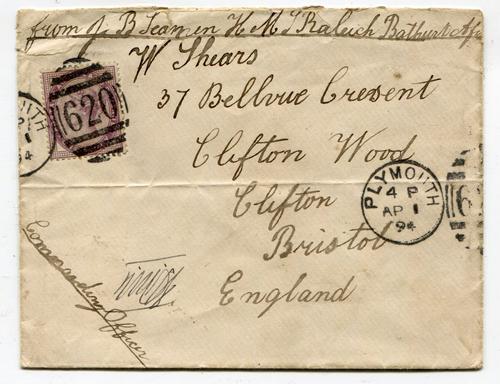 from J B Seamen H M S Raleich Bathurst Afr
W Shears
37 Bellvue Cresent
Clifton Wood
Clifton
Bristol
England
620
MOUTH
94
PLYMOUTH
4 P
AP 1
94
6
Commanding Officer